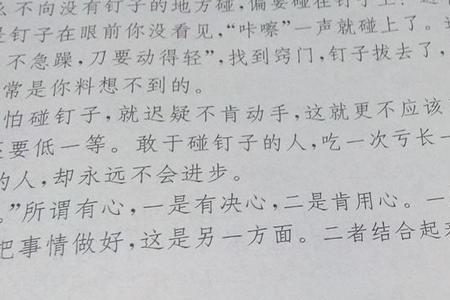 么不向没有钉子的地方碰,偏要碰在钉子上?
是钉子在眼前你没看见,“咔嚓”一声就碰上了。
不急躁,刀要动得轻”,找到窍门,钉子拔去了,
常是你料想不到的。
怕碰钉子,就迟疑不肯动手,这就更不应该
要低一等。敢于碰钉子的人,吃一次亏长一
的人,却永远不会进步。
。”所谓有心,一是有决心,二是肯用心。一
把事情做好,这是另一方面。二者结合起来